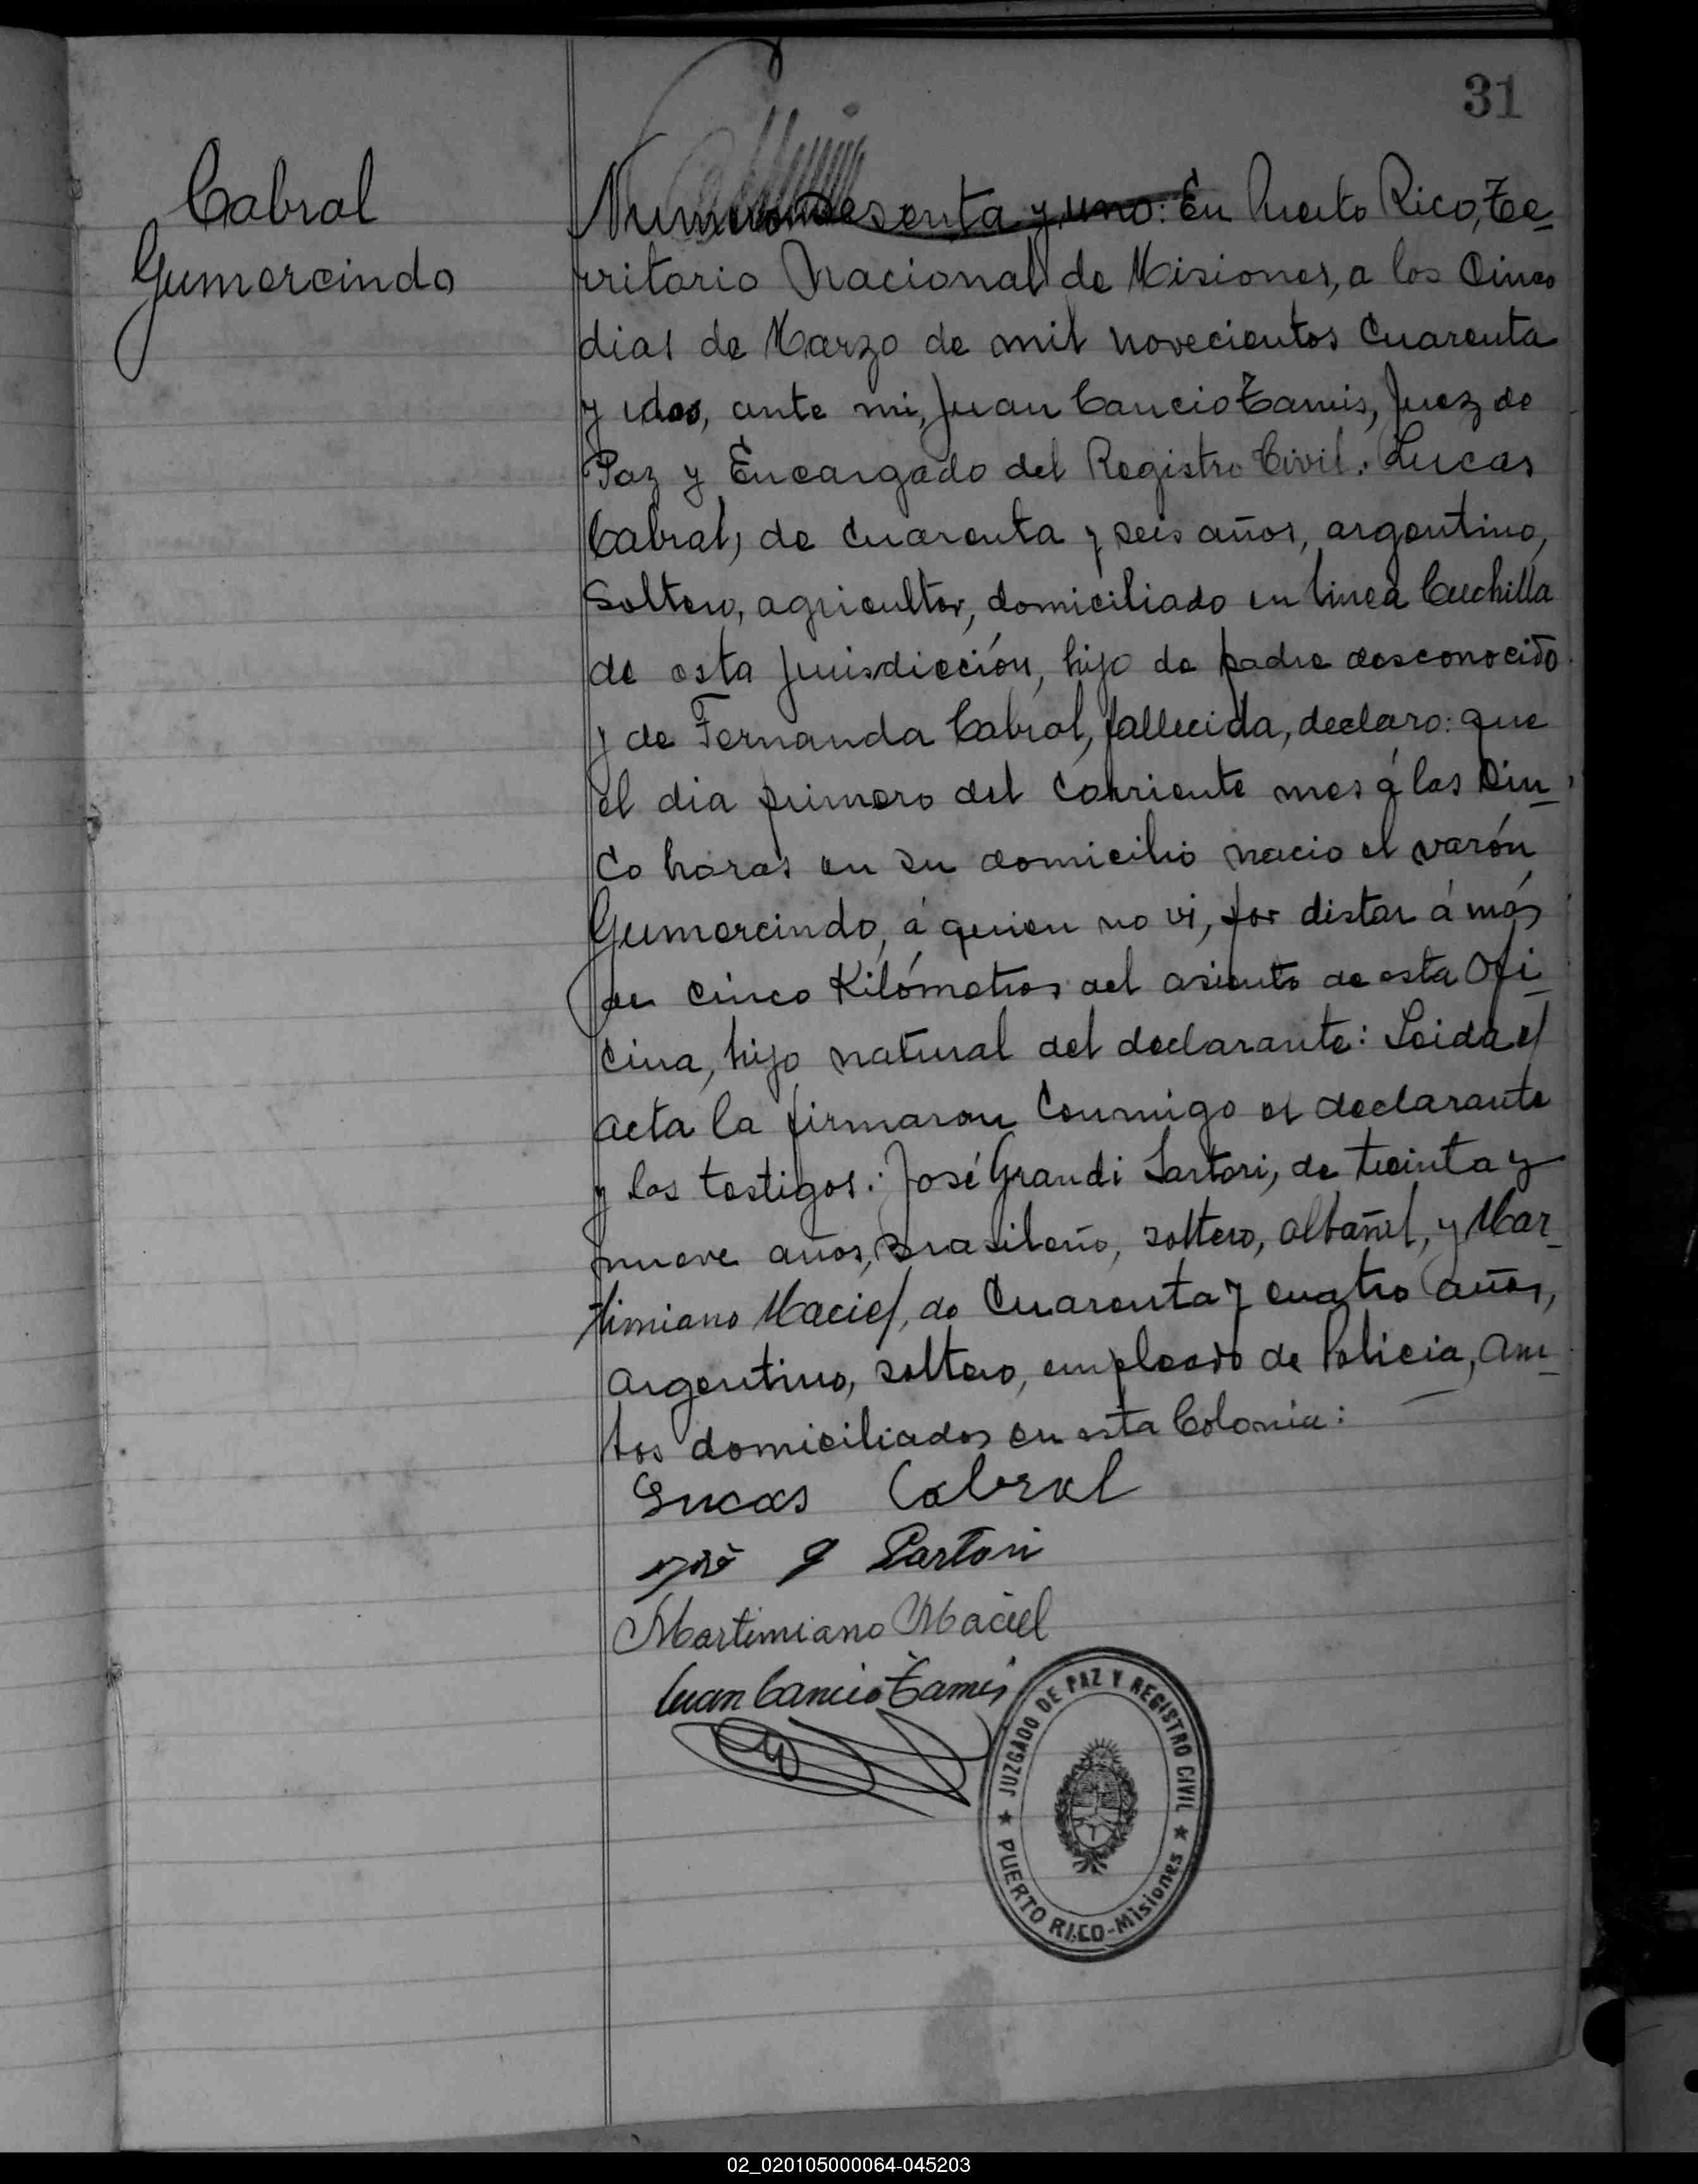 31
Cabral
Gumercindo
Numero Sesenta y uno: En Puerto Rico, Te-
rritorio Nacional de Misiones, a los Cinco
dias de Marzo de mil novecientos Cuarenta
y dos, ante mi, Juan Cancio Tamis, Juez de
Paz y Encargado del Registro Civil. Lucas
Cabral, de Cuarenta y seis años, argentino,
Soltero, agricultor, domiciliado en linea Cuchilla
de esta Jurisdicción, hijo de padre desconocido
y de Fernanda Cabral, fallecida, declaro: que
el dia primero del Corriente mes á las Cin-
Co horas en su domicilio nacio el varón
Gumercindo, á quien no vi, por distar á más
de cinco Kilómetros del asiento de esta Ofi-
cina, hijo natural del declarante: Leida el
acta la firmaron Conmigo el declarante
y los testigos: José Grandi Sartori, de treinta y
nueve años, Brasileño, soltero, albañil, y Mar-
timiano Maciel, de Cuarenta y cuatro años,
argentino, soltero, empleado de Policia, am-
bos domiciliados en esta Colonia:
Lucas Cabral
José G Sartori
Martimiano Maciel
Juan Cancio Tamis
JUZGADO DE PAZ Y REGISTRO CIVIL
PUERTO RICO-Misiones
02_020105000064-045203